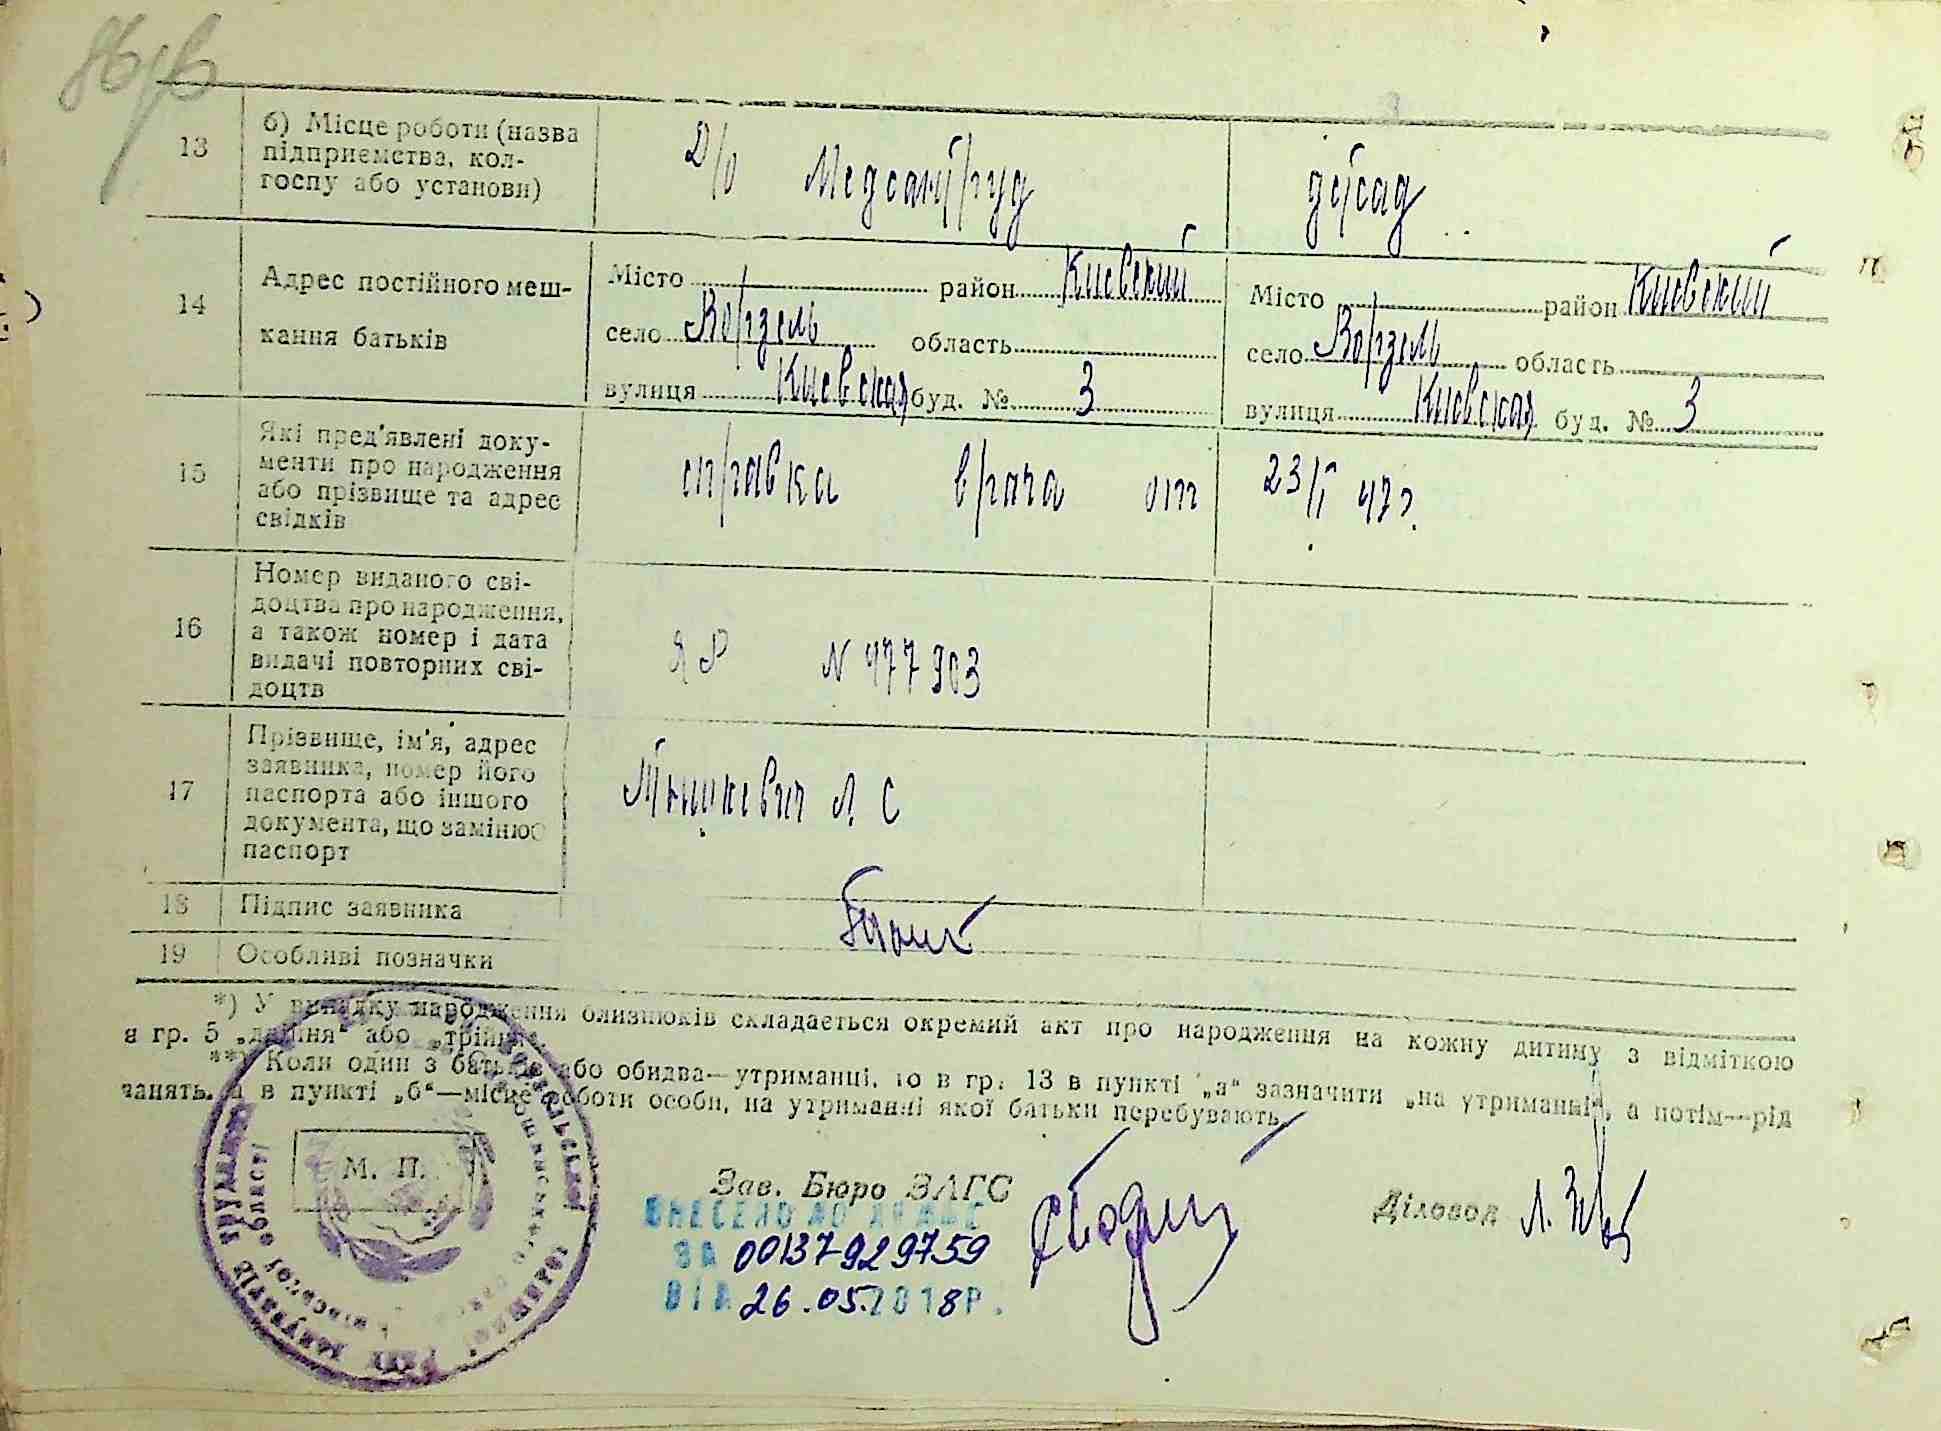 13
б) Місце роботи (назва
підприємства, кол-
госпу або установи)
Д/о Медсантруд
д/сад
14
Адрес постійного меш-
кання батьків
Місто район Киевский
село Ворзель область
вулиця Киевская буд. № 3
Місто район Киевский
село Ворзель область
вулиця Киевская буд. № 3
15
Які пред'явлені доку-
менти про народження
або прізвище та адрес
свідків
справка врача от 23/V 47г.
16
Номер виданого сві-
доцтва про народження,
а також номер і дата
видачі повторних сві-
доцтв
N 477903
17
Прізвище, ім'я, адрес
заявника, номер його
паспорта або іншого
документа, що замінює
паспорт
Л. С
18
Підпис заявника
19
Особливі позначки
*) У випадку народження близнюків складається окремий акт про народження на кожну дитину з відміткою
в гр. 5 „двійня“ або „трійня“.
**) Коли один з батьків або обидва—утриманці, то в гр. 13 в пункті „а“ зазначити „на утриманні“, а потім—рід
занять, а в пункті „б“—місце роботи особи, на утриманні якої батьки перебувають.
М. П.
Зав. Бюро ЗАГС
Діловод
ВНЕСЕНО ДО ДРАЦС
ЗА 00137929759
ВІД 26.05.2018Р.